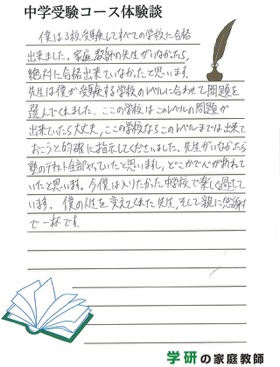 中学受験コース体験談
僕は3校受験してすべての学校に合格
出来ました。家庭教師の先生がいなかったら、
絶対に合格出来ていなかったと思います。
先生は僕が受験する学校のレベルに合わせて問題を
選んでくれました。ここの学校はこのレベルの問題が
出来ていたら大丈夫、ここの学校ならこのレベルまでは出来て
おこうと的確に指示してくださいました。先生がいなかったら
塾のテキスト全部やっていたと思いますし、どこかで心が折れて
いたと思います。今僕は入りたかった中学校で楽しく過ごして
います。僕の人生を変えてくれた先生、そして親に感謝
で一杯です。
学研の家庭教師